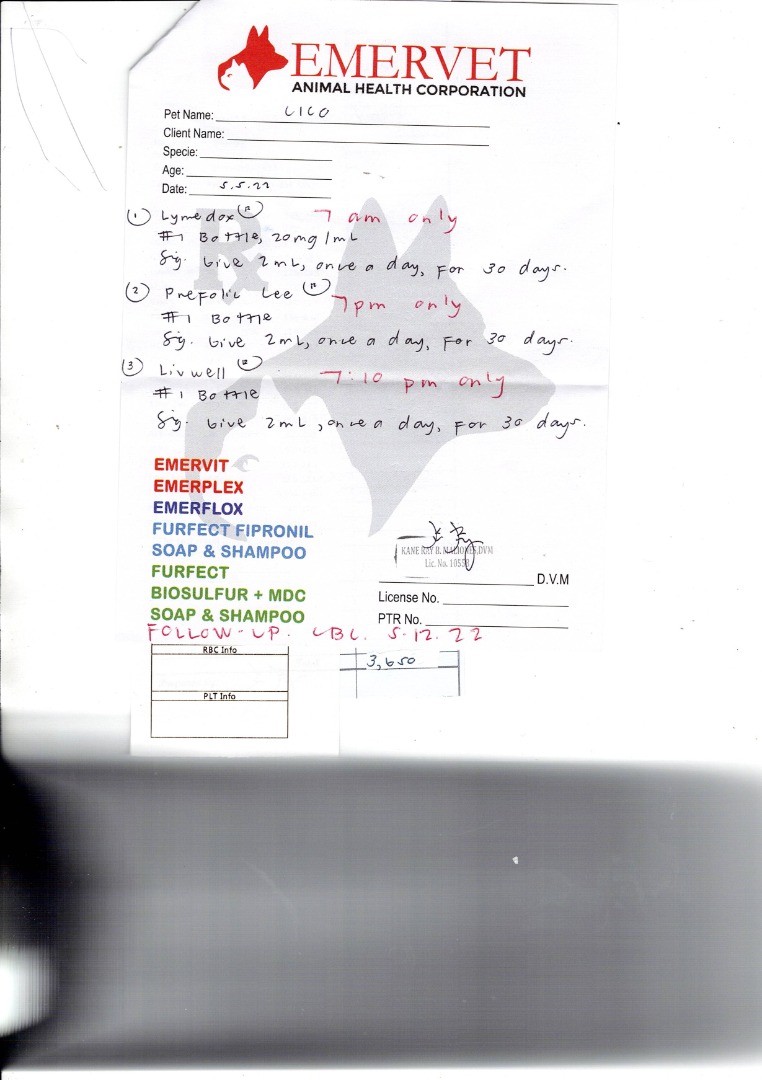 EMERVET
ANIMAL HEALTH CORPORATION
Pet Name: CICO
Client Name:
Specie:
Age:
Date: 5.5.22
Rx
① Lymedox ® 7 am only
#1 Bottle, 20mg/mL
Sig. Give 2mL, once a day, For 30 days.
② Prefolic Cee ® 7pm only
#1 Bottle
Sig. Give 2mL, once a day, For 30 days.
③ Livwell ® 7:10 pm only
#1 Bottle
Sig. Give 2mL, once a day, For 30 days.
EMERVIT
EMERPLEX
EMERFLOX
FURFECT FIPRONIL
SOAP & SHAMPOO
FURFECT
BIOSULFUR + MDC
SOAP & SHAMPOO
KANE RAY B. DVM
Lic. No.
D.V.M
License No.
PTR No.
FOLLOW-UP. CBC. 5.12.22
RBC Info
3,650
PLT Info